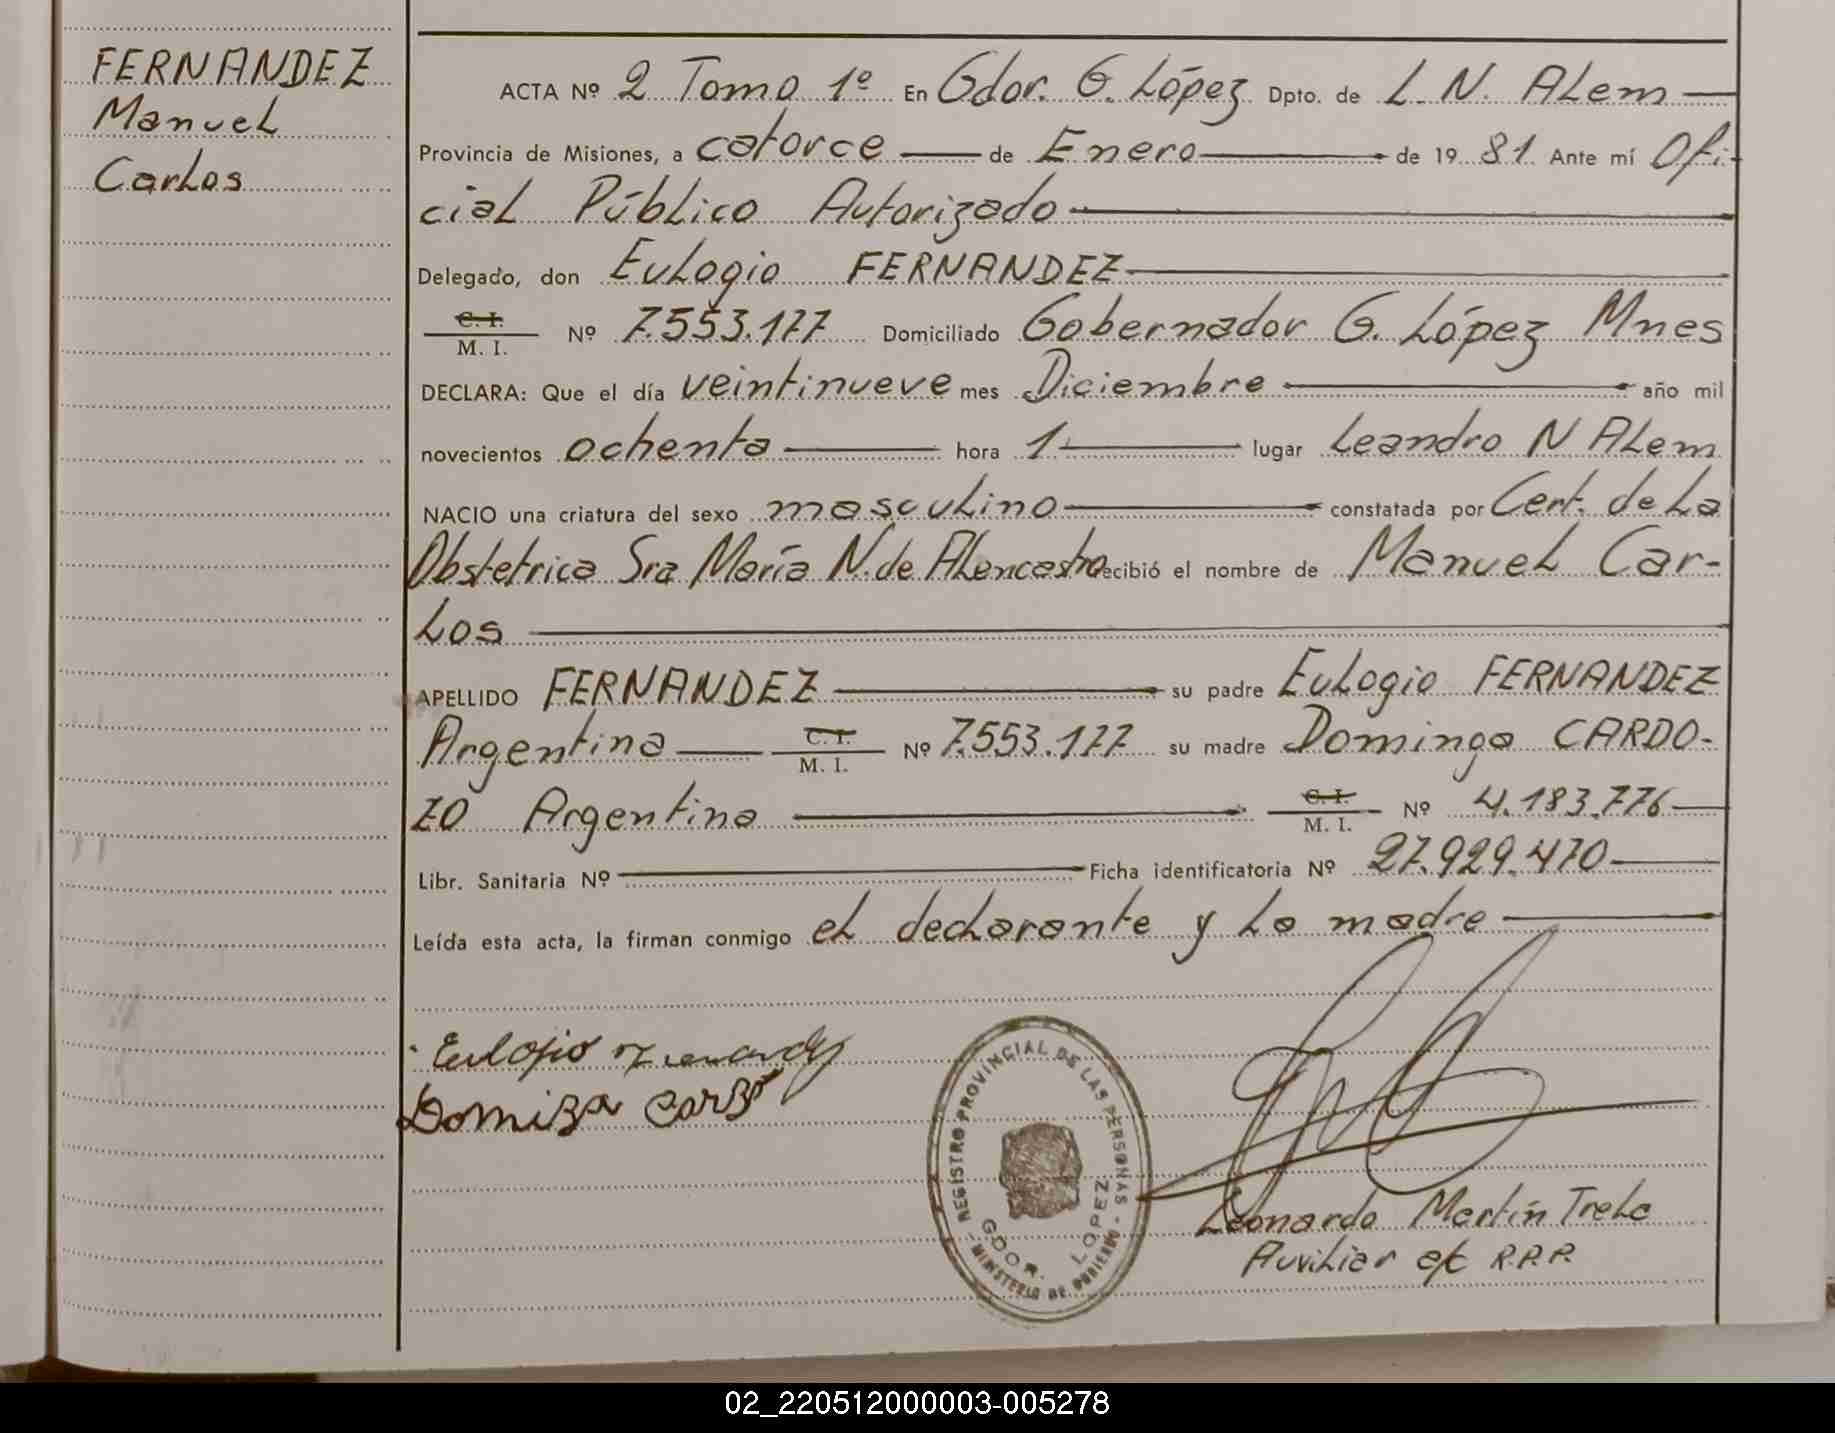 FERNANDEZ
Manuel
Carlos
ACTA Nº 2 Tomo 1º En Gdor. G. López Dpto. de L. N. ALem
Provincia de Misiones, a catorce de Enero de 1981 Ante mí Ofi-
cial Público Autorizado
Delegado, don Eulogio FERNANDEZ
C. I.
M. I. Nº 7.553.177 Domiciliado Gobernador G. López Mnes
DECLARA: Que el día veintinueve mes Diciembre año mil
novecientos ochenta hora 1 lugar Leandro N ALem
NACIO una criatura del sexo masculino constatada por Cert. de La
Obstetrica Sra María N. de ALencastro recibió el nombre de Manuel Car-
Los
APELLIDO FERNANDEZ su padre Eulogio FERNANDEZ
Argentina C. I.
M. I. Nº 7.553.177 su madre Dominga CARDO-
ZO Argentina C. I.
M. I. Nº 4.183.776
Libr. Sanitaria Nº Ficha identificatoria Nº 27.929.470
Leída esta acta, la firman conmigo el declarante y La madre
Eulojio
REGISTRO PROVINCIAL DE LAS PERSONAS
GDOR. LOPEZ
MINISTERIO DE GOBIERNO
Leonardo Martín Trela
Auxiliar R.P.P.
02_220512000003-005278